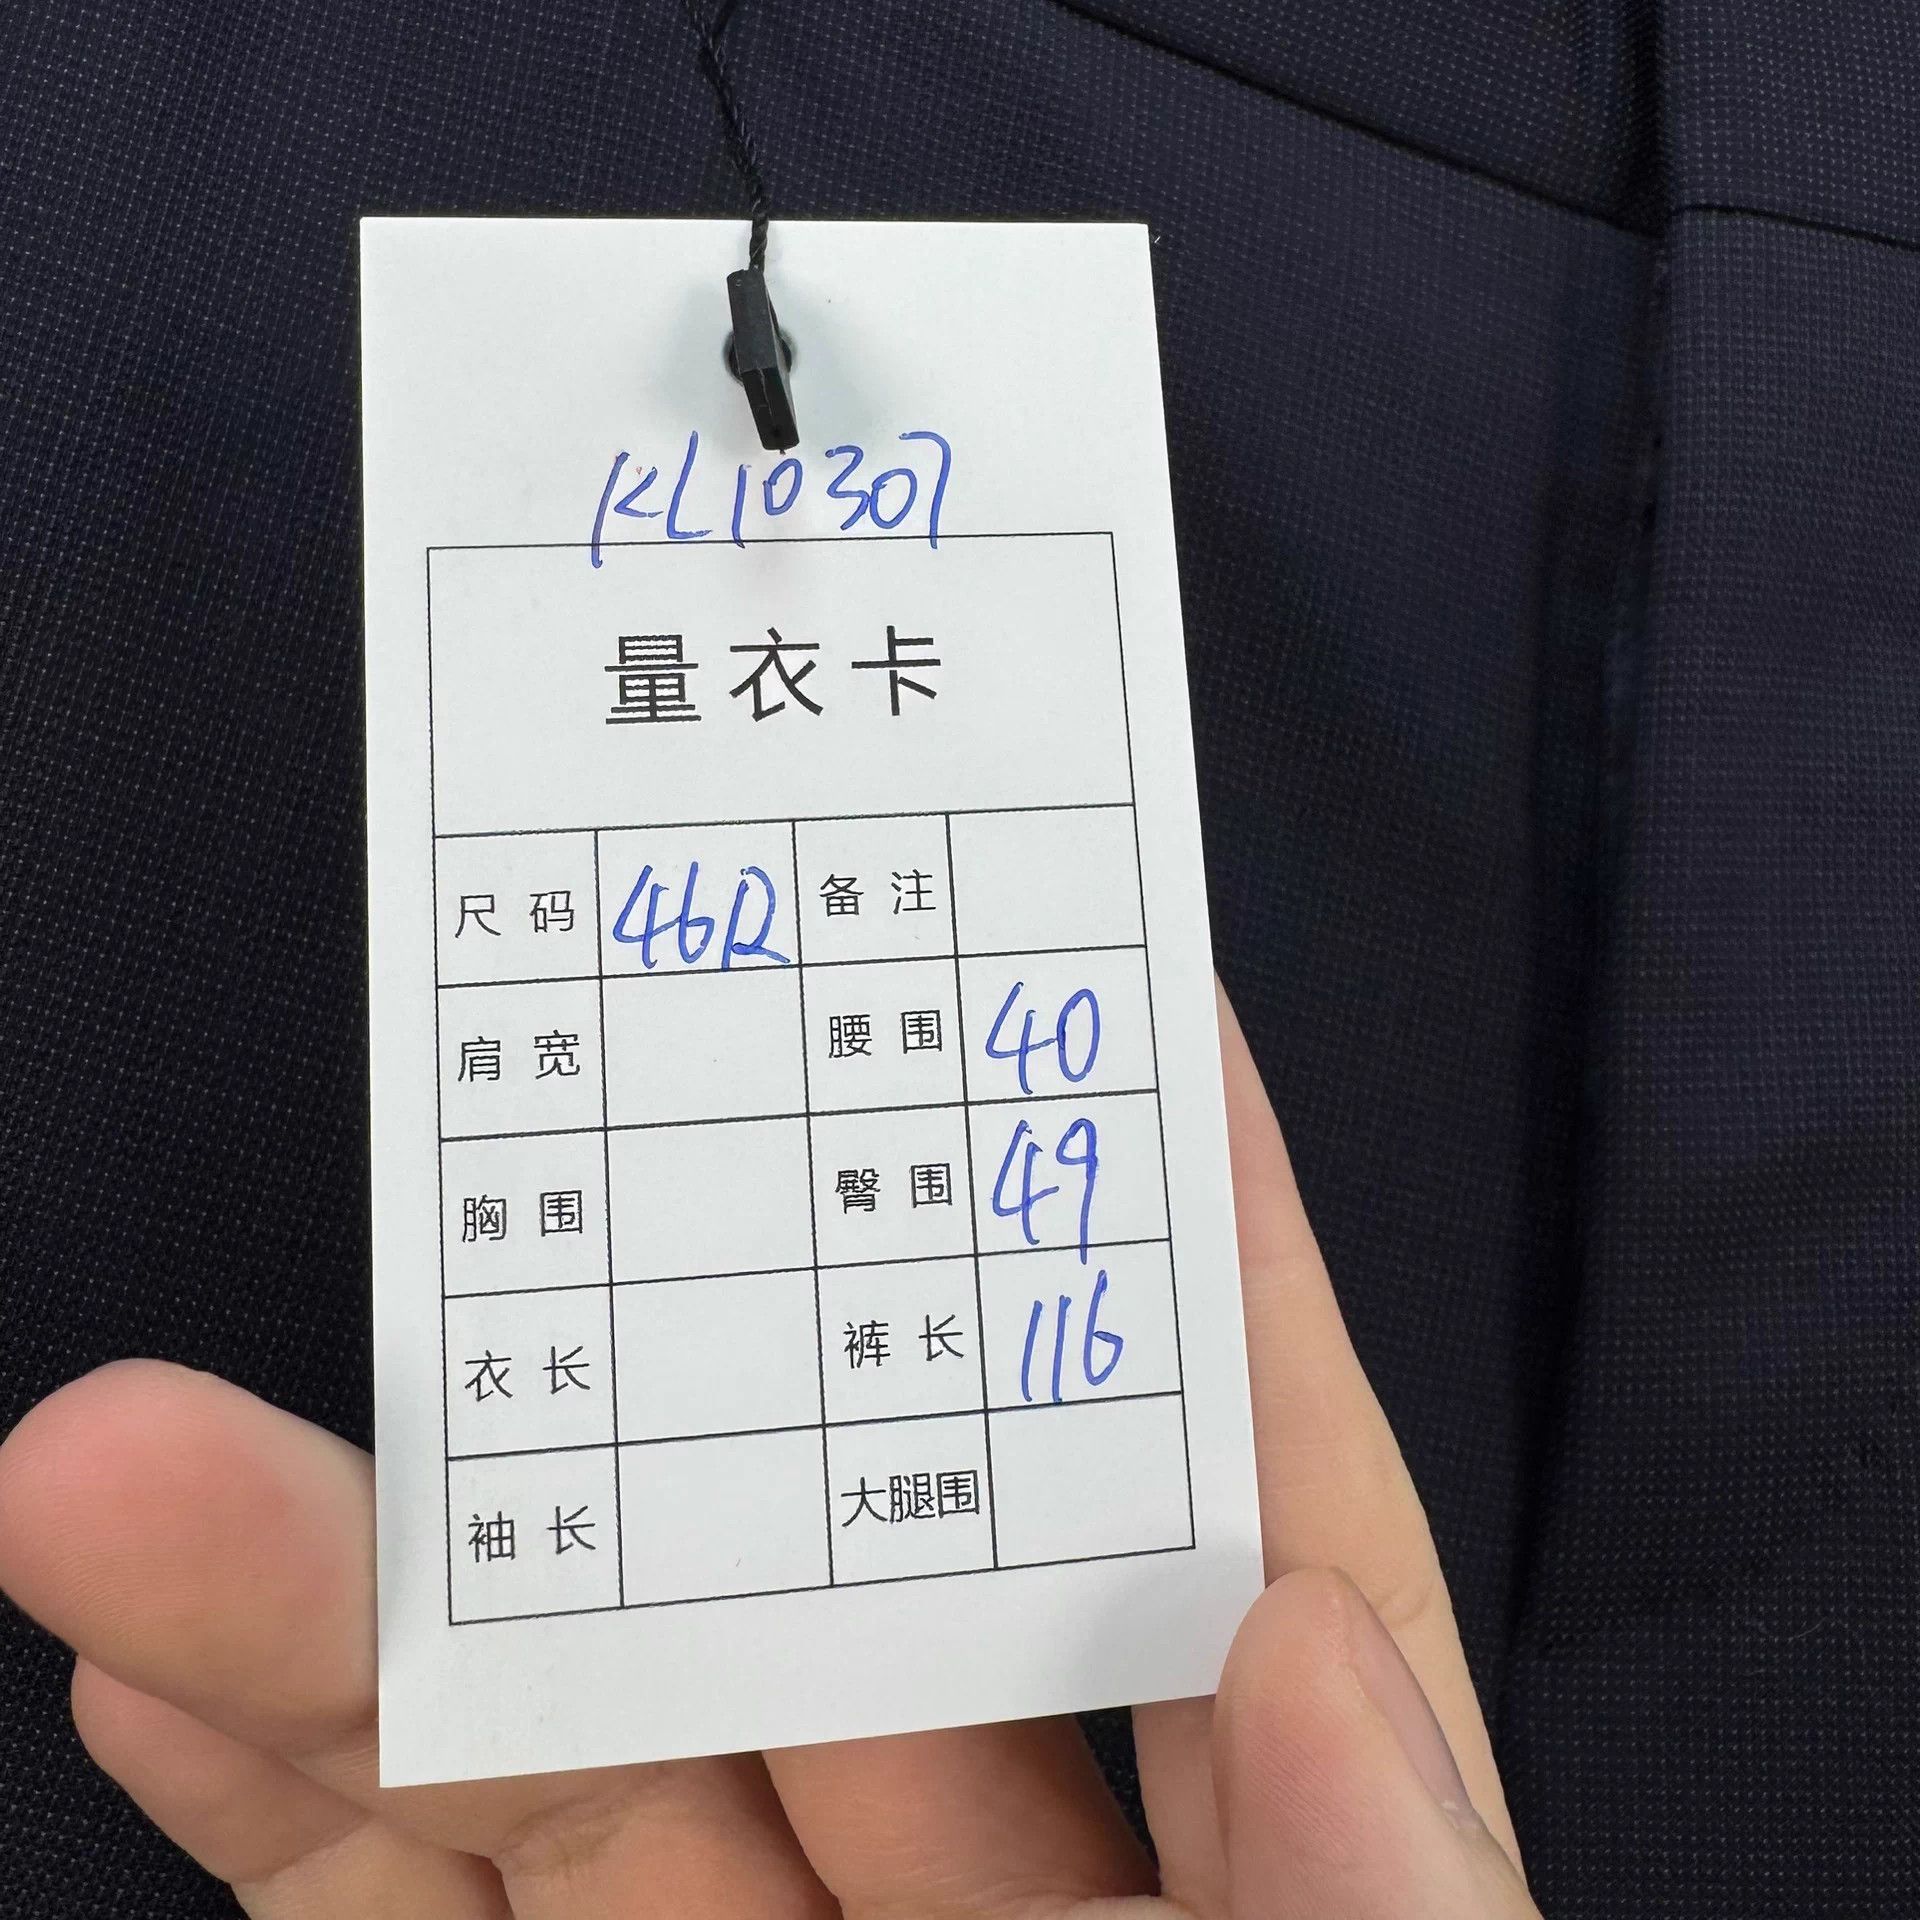 KL10307
量衣卡
尺码 46R 备注
肩宽 腰围 40
胸围 臀围 49
衣长 裤长 116
袖长 大腿围